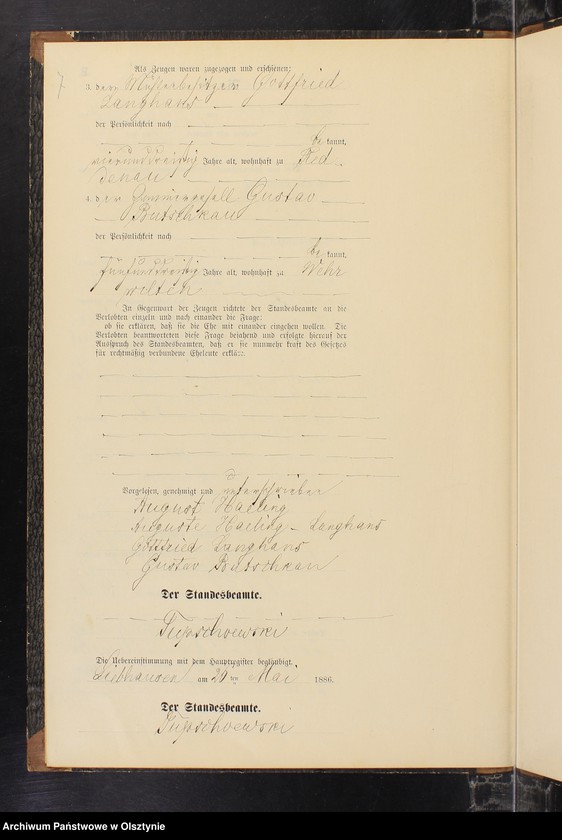 7.
Als Zeugen waren zugezogen und erschienen:
Gottfried
Langhans
der Persönlichkeit nach
be kannt,
vierunddreißig Jahre alt, wohnhaft zu Red-
denau
Gustav
Butschkau
der Persönlichkeit nach
be kannt,
fünfunddreißig Jahre alt, wohnhaft zu Wehr
wilten
In Gegenwart der Zeugen richtete der Standesbeamte an die
Verlobten einzeln und nach einander die Frage:
ob sie erklären, daß sie die Ehe mit einander eingehen wollen. Die
Verlobten beantworteten diese Frage bejahend und erfolgte hierauf der
Ausspruch des Standesbeamten, daß er sie nunmehr kraft des Gesetzes
für rechtmäßig verbundene Eheleute erkläre.
Vorgelesen, genehmigt und unterschrieben
August Hasling
Auguste Hasling - Langhans
Gottfried Langhans
Gustav Butschkau
Der Standesbeamte.
Die Uebereinstimmung mit dem Hauptregister beglaubigt.
am 20 ten Mai 1886.
Der Standesbeamte.
Archiwum Państwowe w Olsztynie